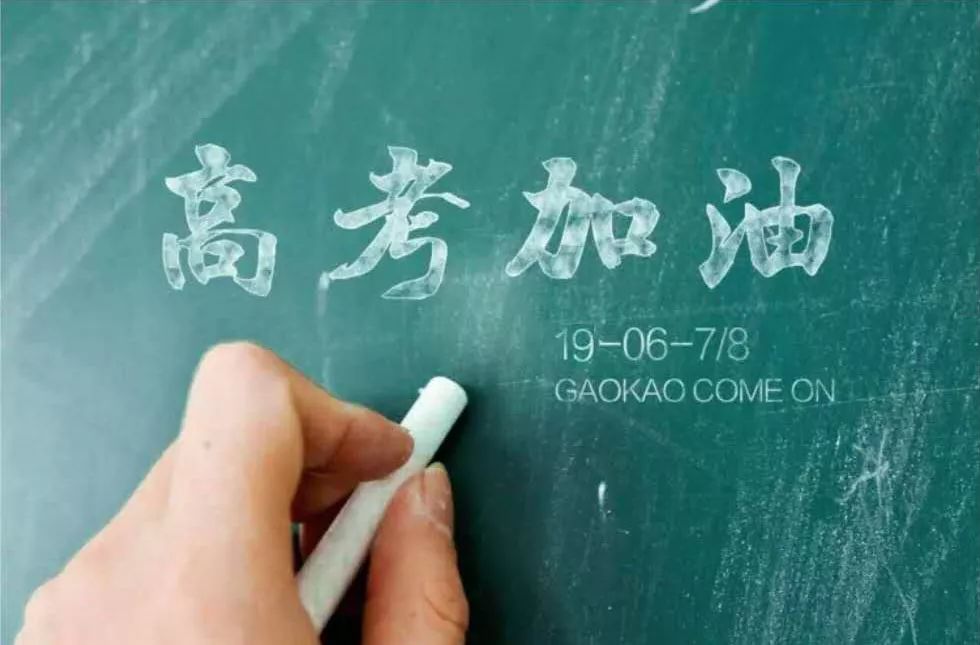 高考加油
19-06-7/8
GAOKAO COME ON